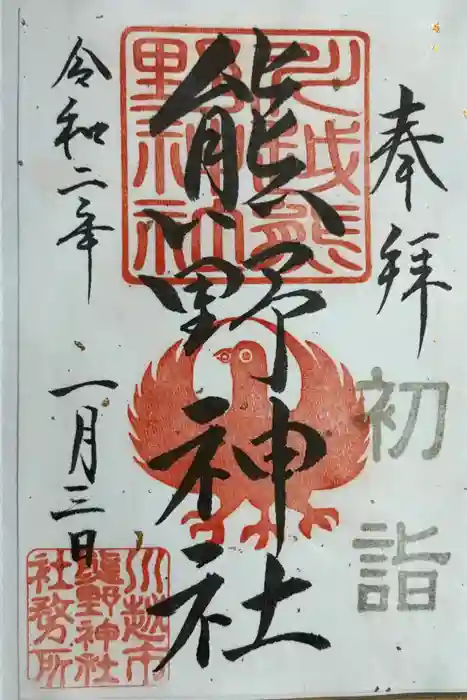 奉拝
初詣
川越熊野神社
熊野神社
令和二年 一月三日
川越市
熊野神社
社務所